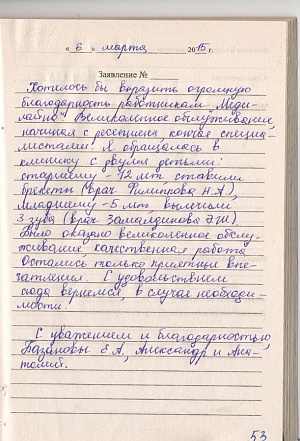 « 6 » марта 2015 г.
Заявление №
Хотелось бы выразить огромную
благодарность работникам "Меди-
лайна". Великолепное обслуживание,
начиная с ресепшена, кончая специа-
листами! Я обращалась в
клинику с двумя детьми:
старшему - 12 лет ставили
брекеты (врач Филипкова Н.А.),
Младшему - 5 лет вылечили
3 зуба (врач Замалдинова Э.Ш.)
Было оказано великолепное обслу-
живание, качественная работа.
Остались только приятные впе-
чатления. С удовольствием
сюда вернемся, в случае необходи-
мости!
С уважением и благодарностью,
Базановы Е.А., Александр и Ана-
толий.
53